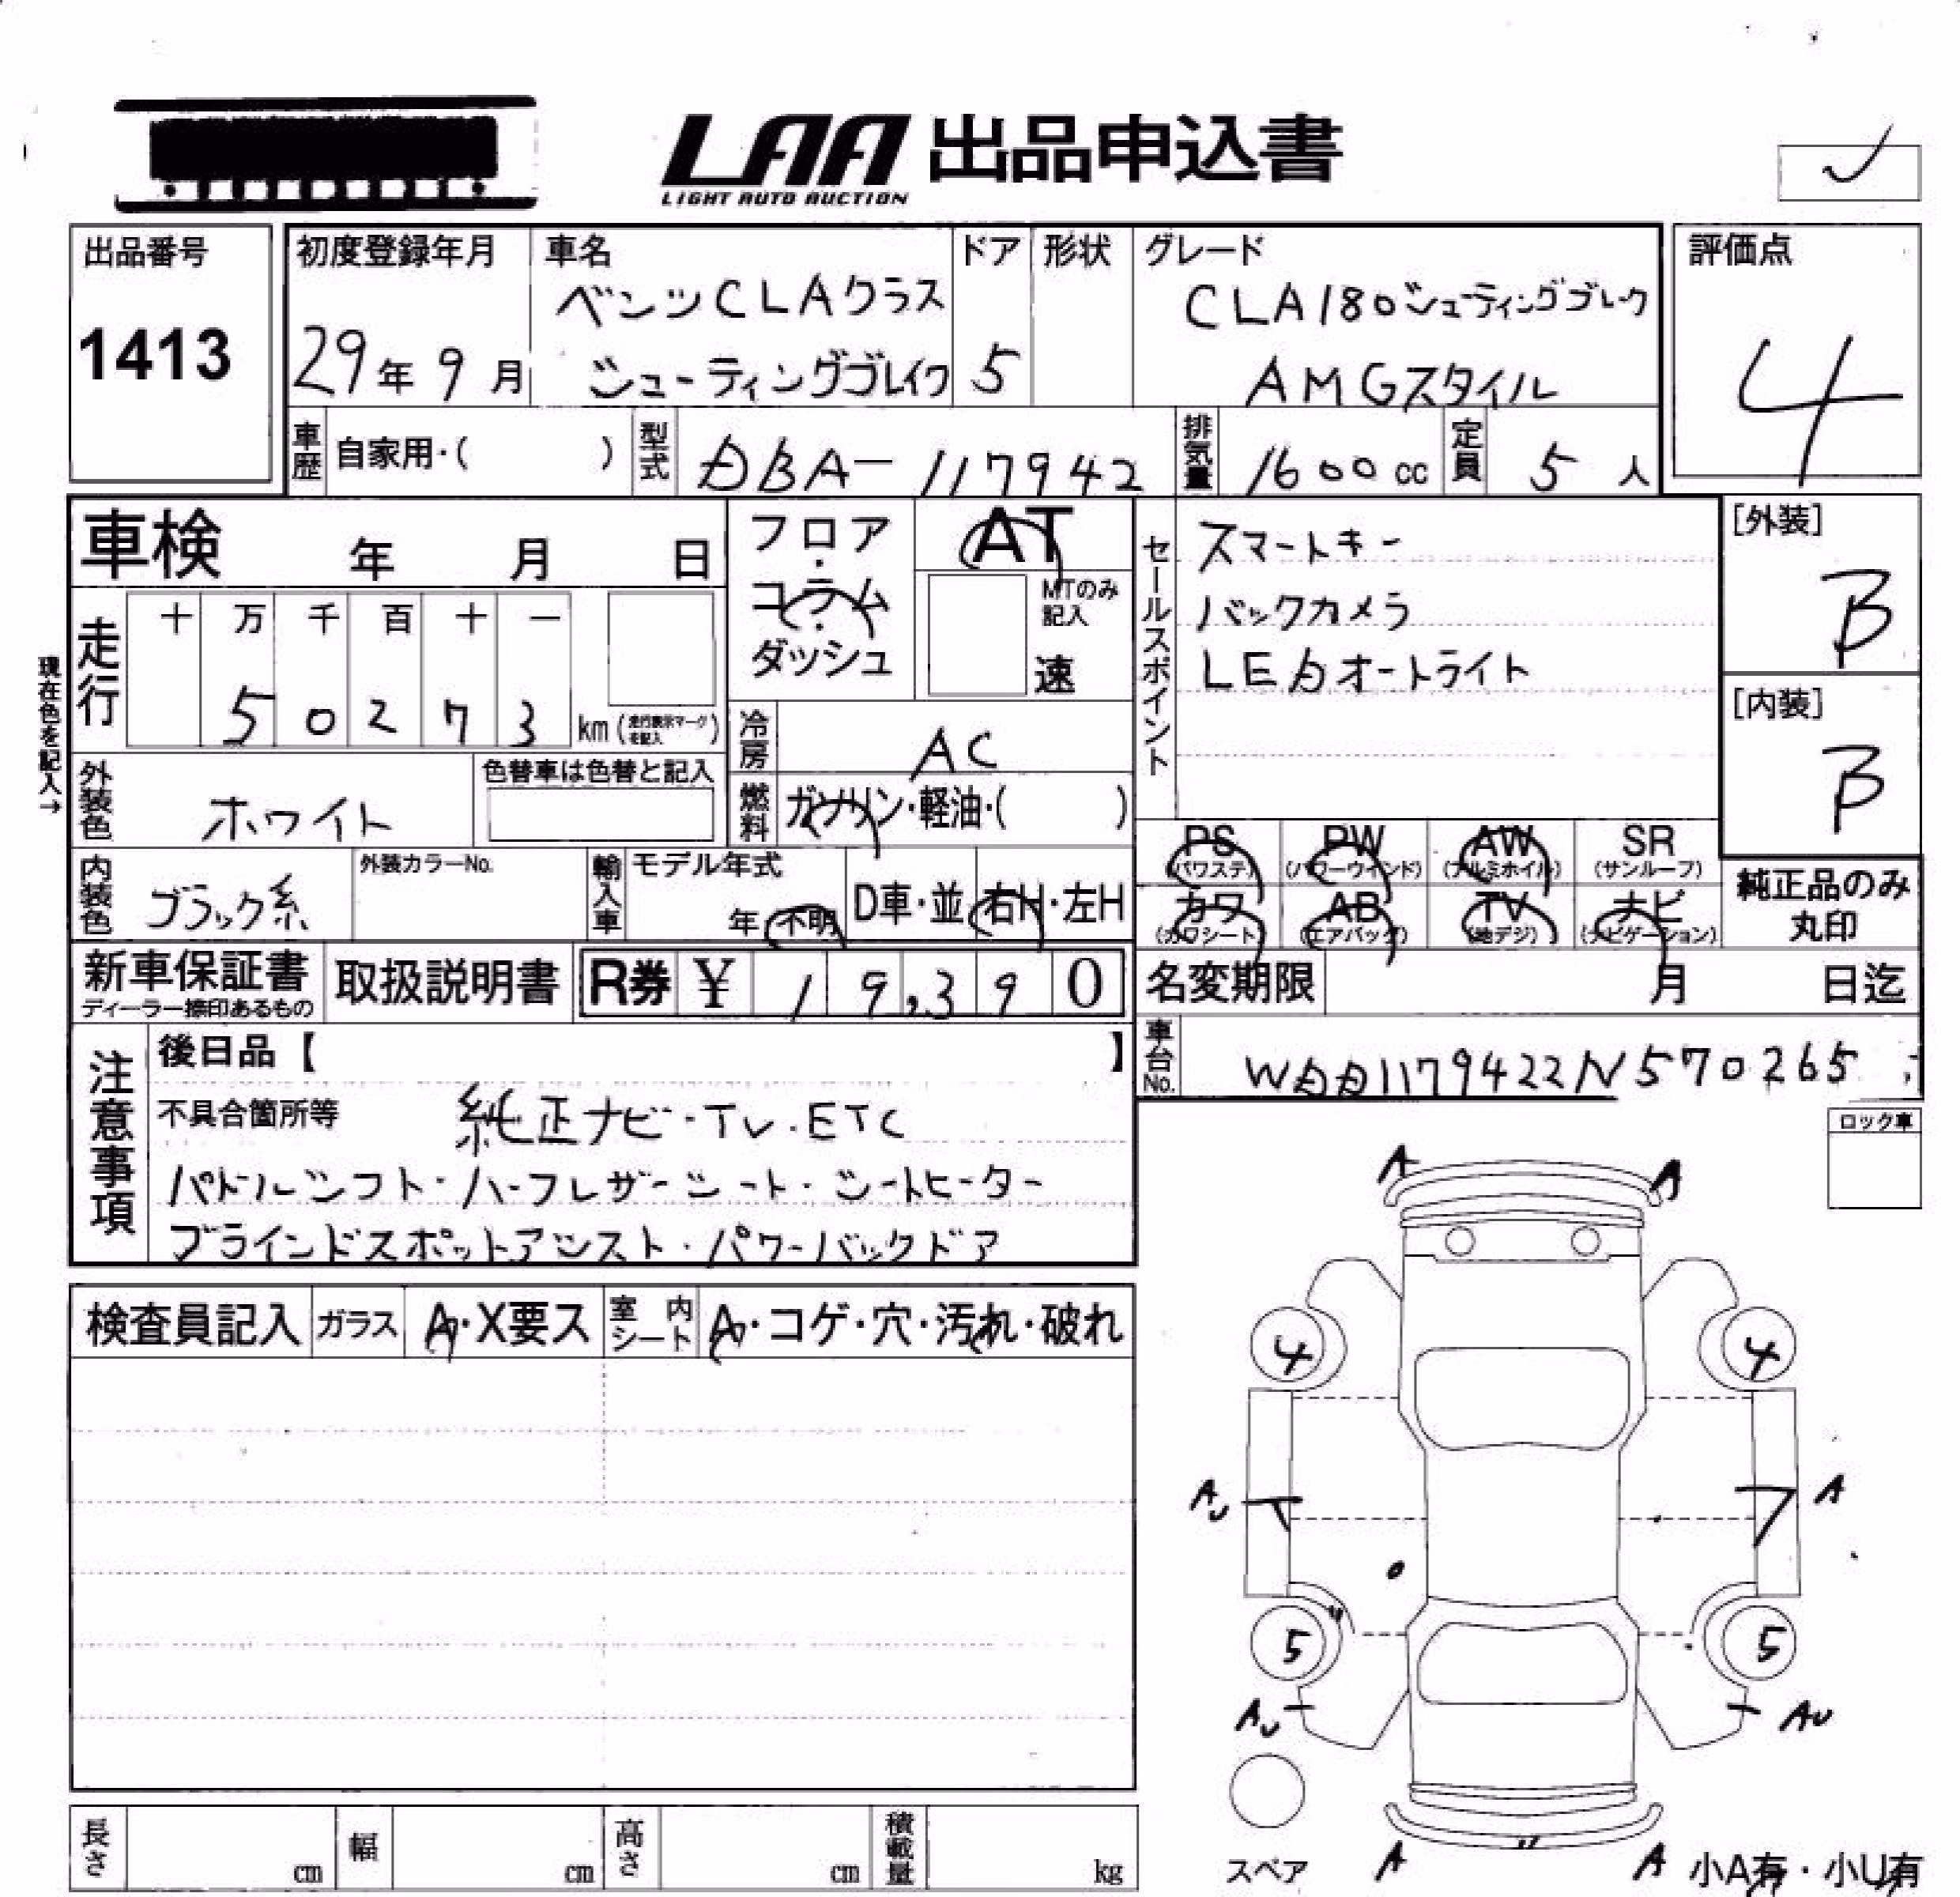 LAA 出品申込書
LIGHT AUTO AUCTION
出品番号
1413
初度登録年月
29年 9月
車名
ベンツCLAクラス
シューティングブレイク
ドア
5
形状
グレード
CLA180シューティングブレーク
AMGスタイル
評価点
4
車歴
自家用・( )
型式
DBA-117942
排気量
1600cc
定員
5人
車検 年 月 日
フロア・コラム・ダッシュ
AT
MTのみ記入
速
セールスポイント
スマートキー
バックカメラ
LEDオートライト
[外装]
B
[内装]
B
現在色を記入→
走行
十 万 千 百 十 一
5 0 2 7 3 km (走行表示マークを記入)
冷房
AC
外装色
ホワイト
色替車は色替と記入
燃料
ガソリン・軽油・( )
内装色
ブラック系
外装カラーNo.
輸入車
モデル年式
年 不明
D車・並
右H・左H
PS (パワステ)
PW (パワーウインド)
AW (アルミホイル)
SR (サンルーフ)
カワ (カワシート)
AB (エアバック)
TV (地デジ)
ナビ (ナビゲーション)
純正品のみ丸印
新車保証書
ディーラー捺印あるもの
取扱説明書
R券 ¥ 19,390
名変期限 月 日迄
車台No.
WDD1179422N570265
注意事項
後日品【 】
不具合箇所等
純正ナビ・TV・ETC
パドルシフト・ハーフレザーシート・シートヒーター
ブラインドスポットアシスト・パワーバックドア
ロック車
検査員記入
ガラス
A・X要ス
室内シート
A・コゲ・穴・汚れ・破れ
A A
4 4
AU A
5 5
AU AU
スペア
A A
小A有・小U有
長さ cm
幅 cm
高さ cm
積載量 kg